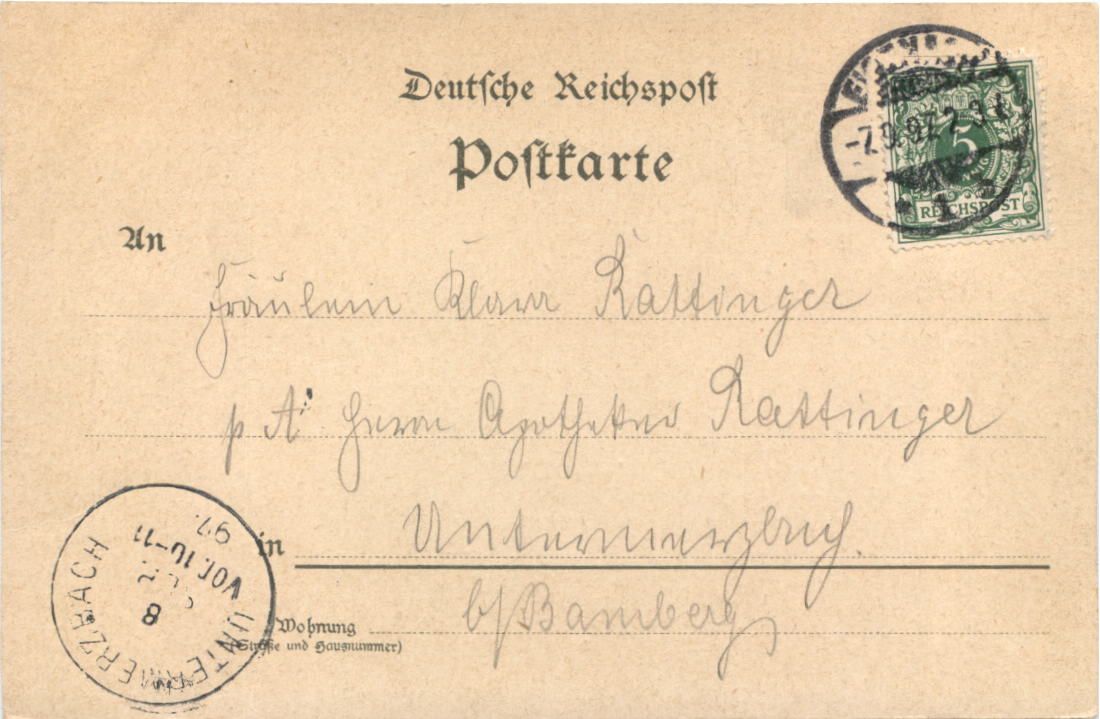 Deutsche Reichspost
Postkarte
7.9.97. 2-3
5
REICHSPOST
1
An
Fräulein Klara Rattinger
p A. Herrn Apotheker Rattinger
in Untermerzbach.
b/Bamberg
Wohnung
(Straße und Hausnummer)
UNTERMERZBACH
8
VOR. 10-11
97.